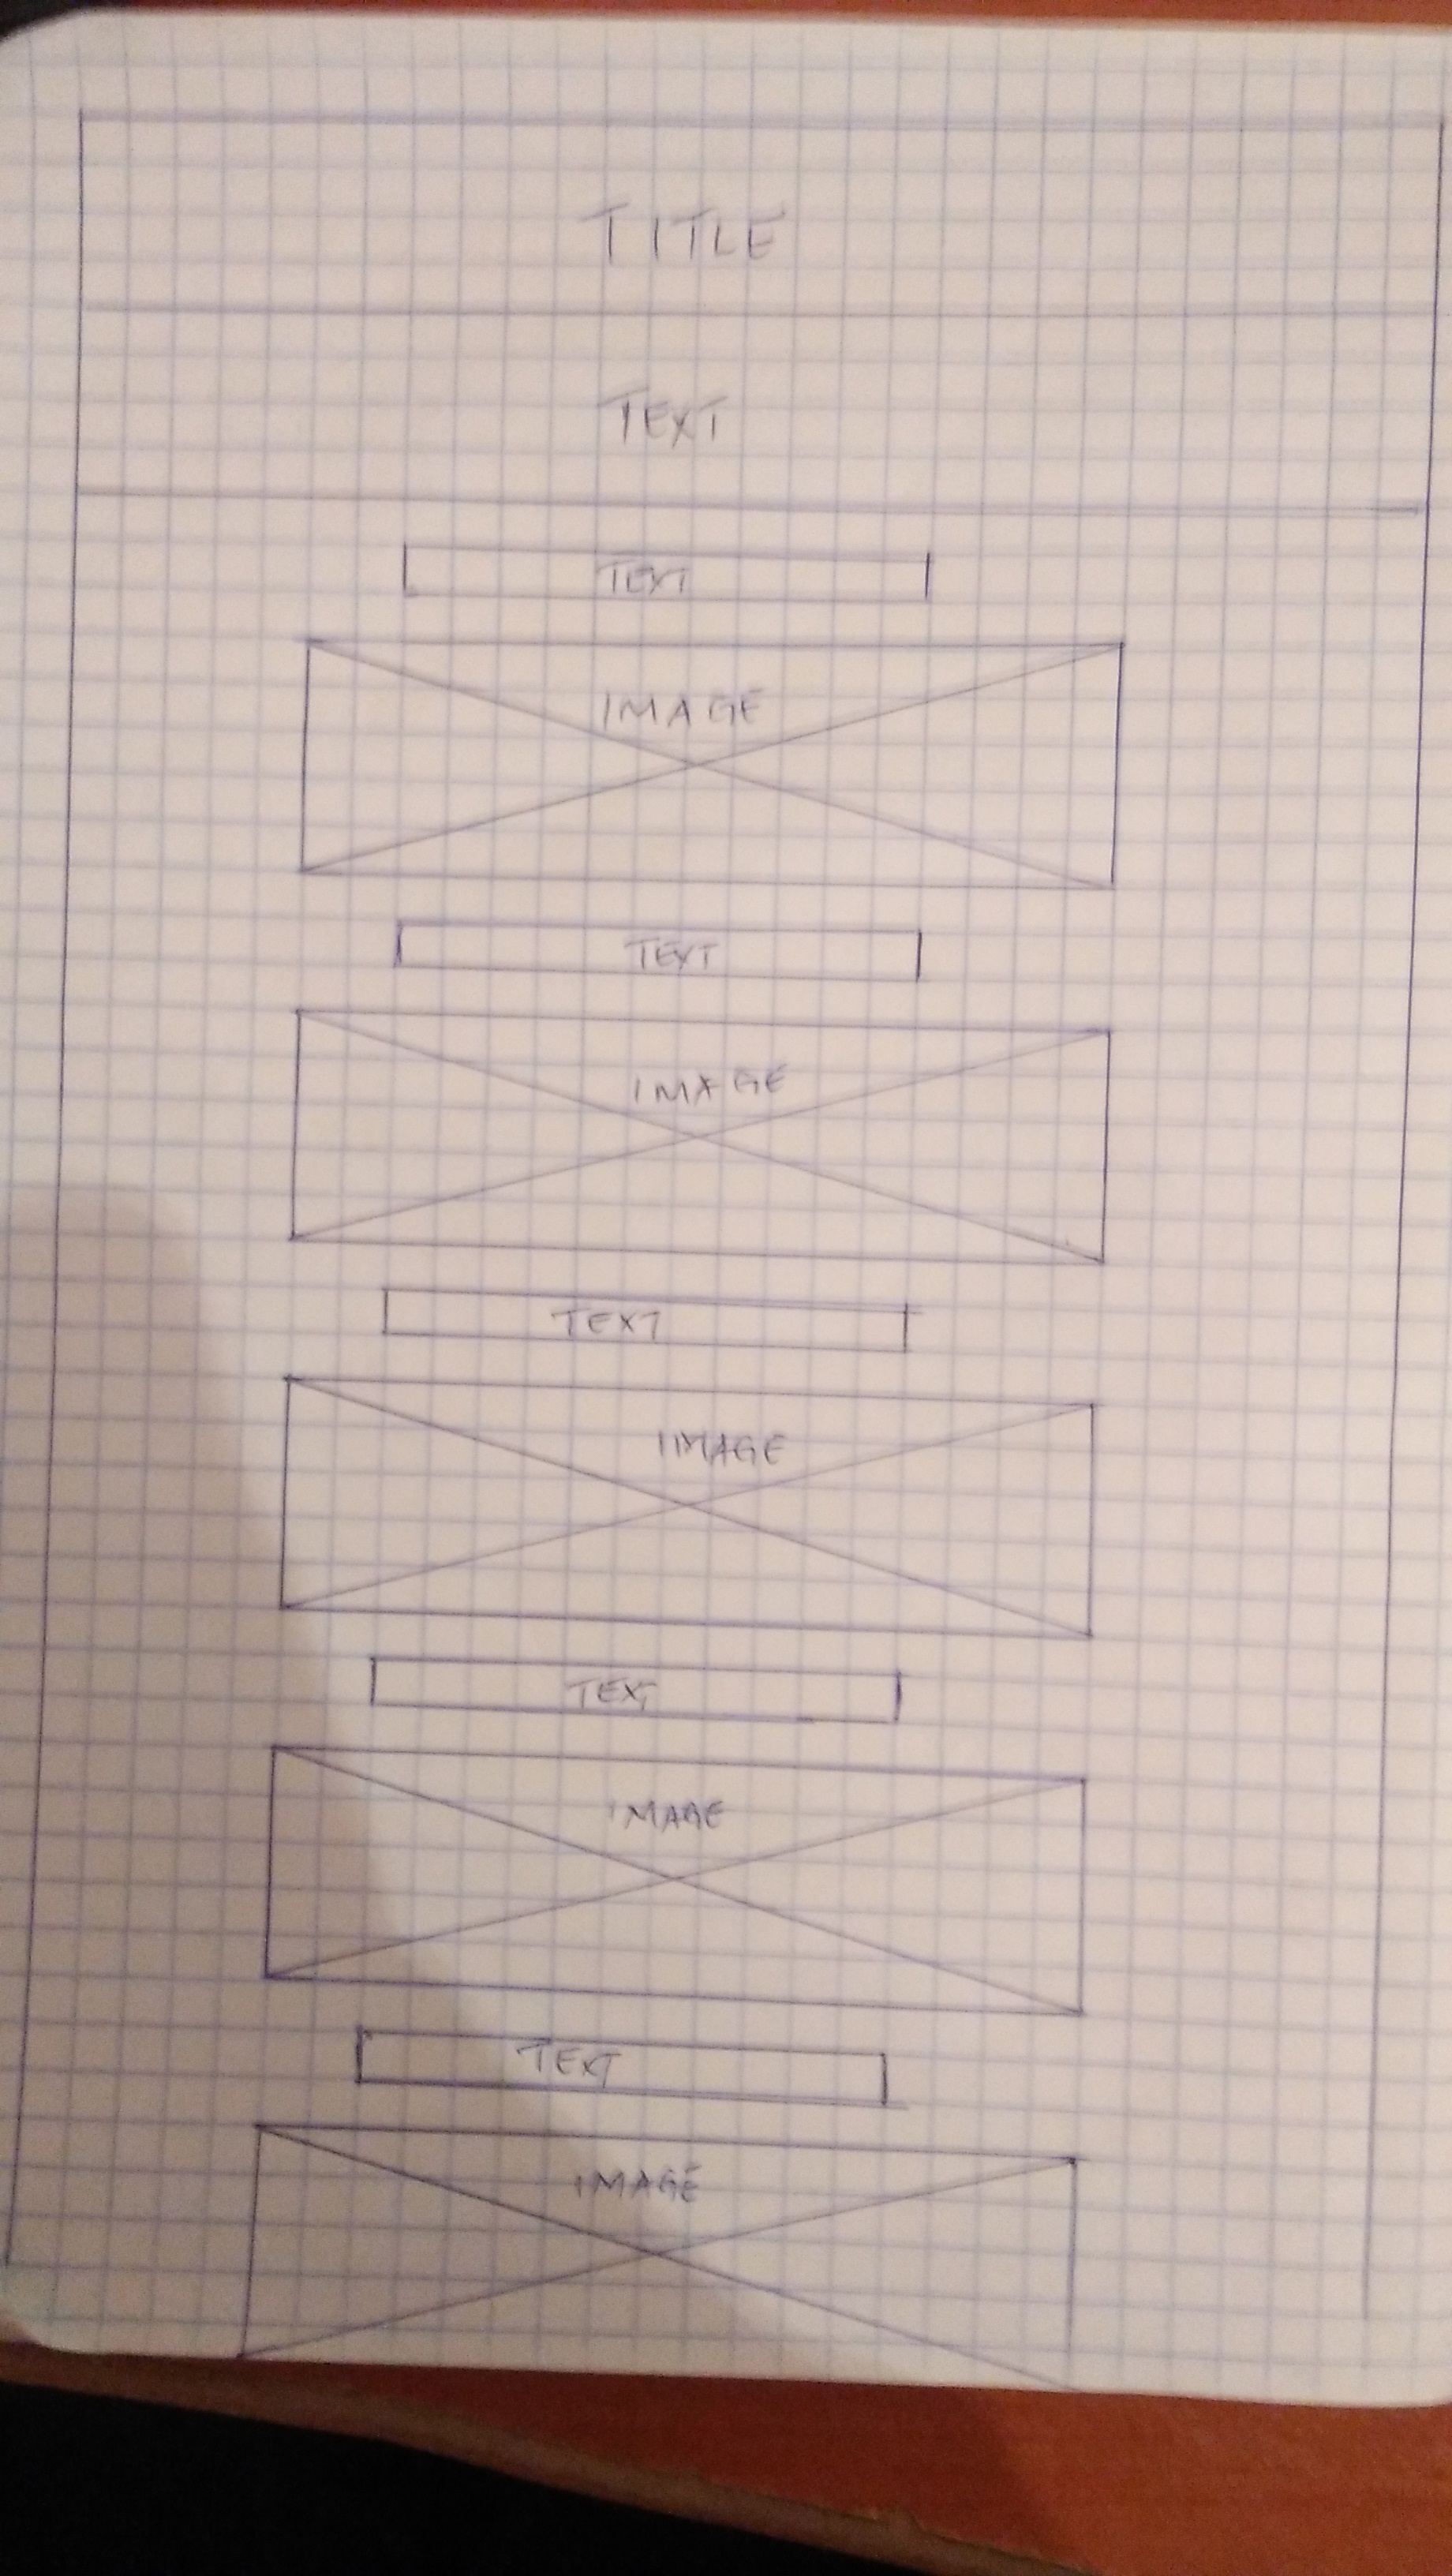 TITLE
TEXT
TEXT
IMAGE
TEXT
IMAGE
TEXT
IMAGE
TEXT
IMAGE
TEXT
IMAGE